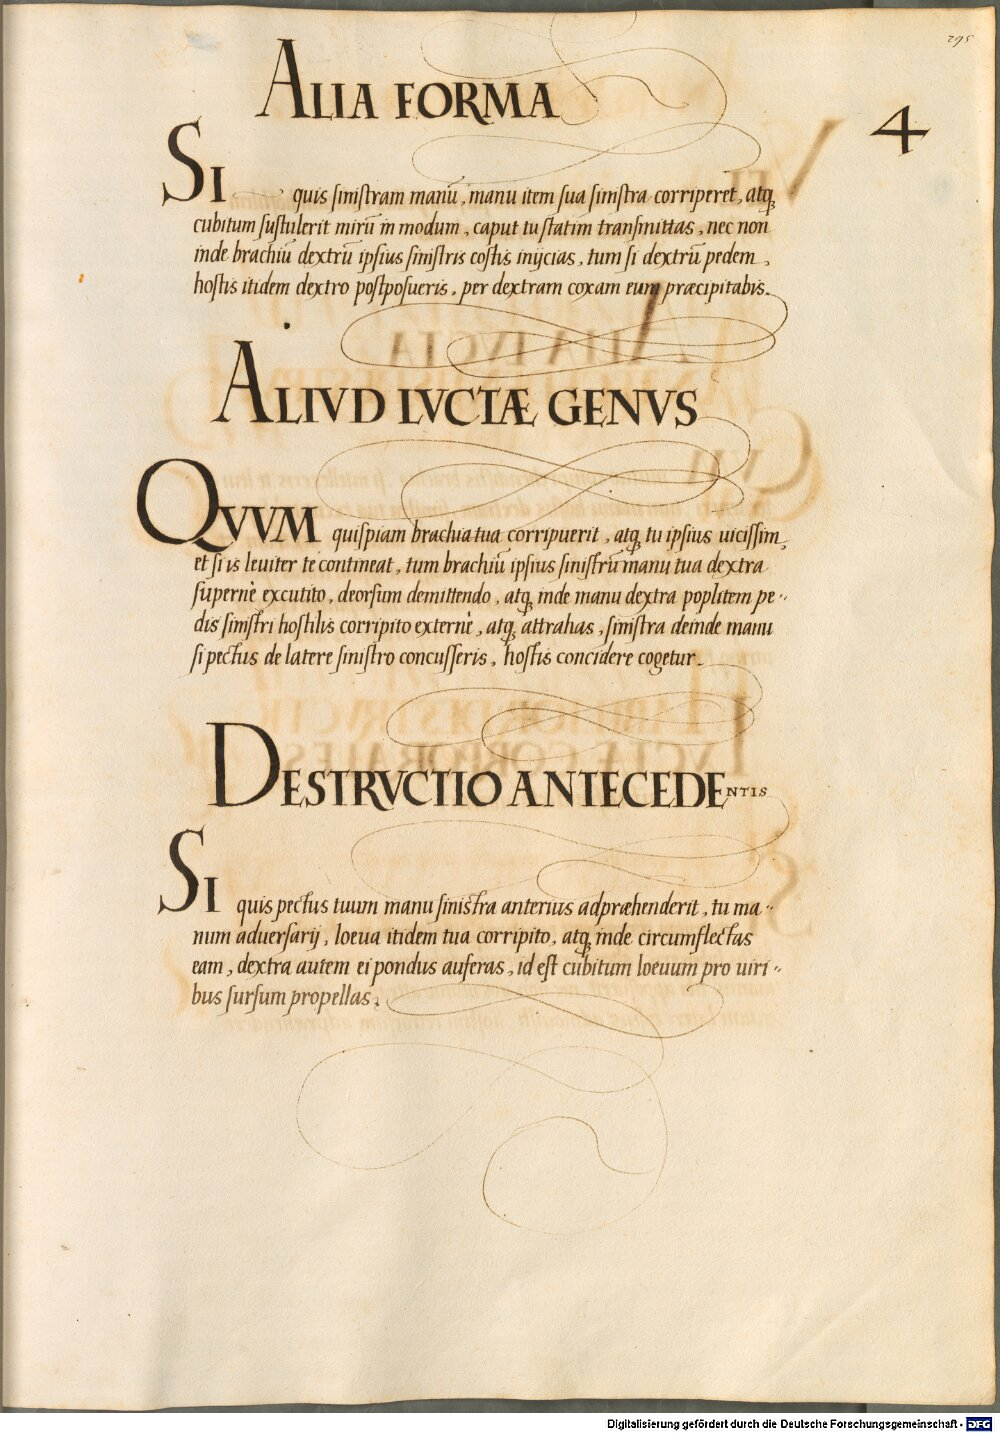 295
ALIA FORMA
4
SI quis sinistram manū, manu item sua sinistra corriperet, atq₃
cubitum sustulerit mirū in modum, caput tu statim transmittas, nec non
inde brachiū dextrū ipsius sinistris costis inijcias, tum si dextrū pedem,
hostis itidem dextro postposueris, per dextram coxam eum præcipitabis.
ALIVD LVCTÆ GENVS
QVVM quispiam brachia tua corripuerit, atq₃ tu ipsius uicissim,
et si is leuiter te contineat, tum brachiū ipsius sinistrū manu tua dextra
supernè excutito, deorsum demittendo, atq₃ inde manu dextra poplitem pe-
dis sinistri hostilis corripito externè, atq₃ attrahas, sinistra deinde manu
si pectus de latere sinistro concusseris, hostis concidere cogetur.
DESTRVCTIO ANTECEDENTIS
SI quis pectus tuum manu sinistra anterius adpræhenderit, tu ma-
num aduersarij, loeua itidem tua corripito, atq₃ inde circumflectas
eam, dextra autem ei pondus auferas, id est cubitum loeuum pro uiri-
bus sursum propellas.
Digitalisierung gefördert durch die Deutsche Forschungsgemeinschaft - DFG